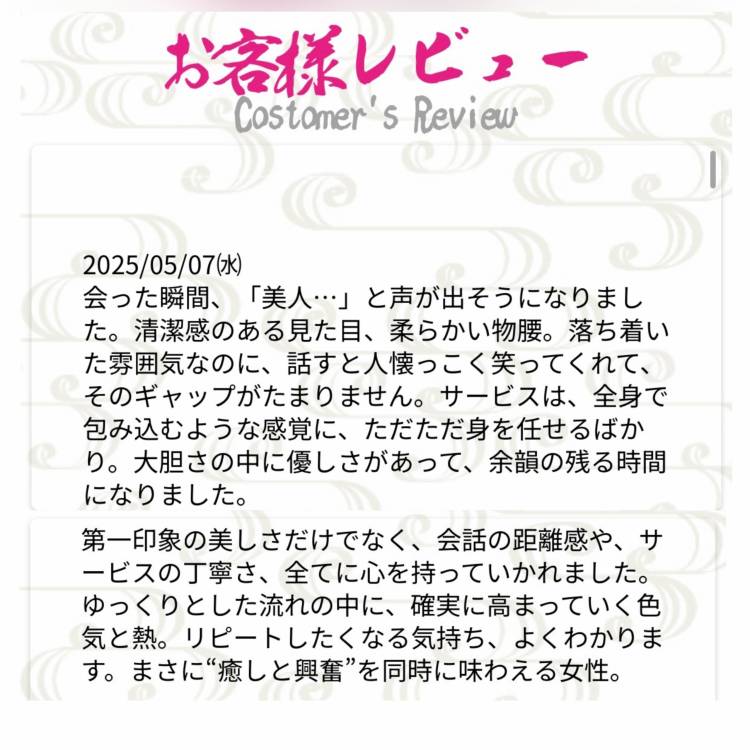 お客様レビュー
Costomer's Review
2025/05/07㈬
会った瞬間、「美人…」と声が出そうになりまし
た。清潔感のある見た目、柔らかい物腰。落ち着い
た雰囲気なのに、話すと人懐っこく笑ってくれて、
そのギャップがたまりません。サービスは、全身で
包み込むような感覚に、ただただ身を任せるばか
り。大胆さの中に優しさがあって、余韻の残る時間
になりました。
第一印象の美しさだけでなく、会話の距離感や、サ
ービスの丁寧さ、全てに心を持っていかれました。
ゆっくりとした流れの中に、確実に高まっていく色
気と熱。リピートしたくなる気持ち、よくわかりま
す。まさに“癒しと興奮”を同時に味わえる女性。